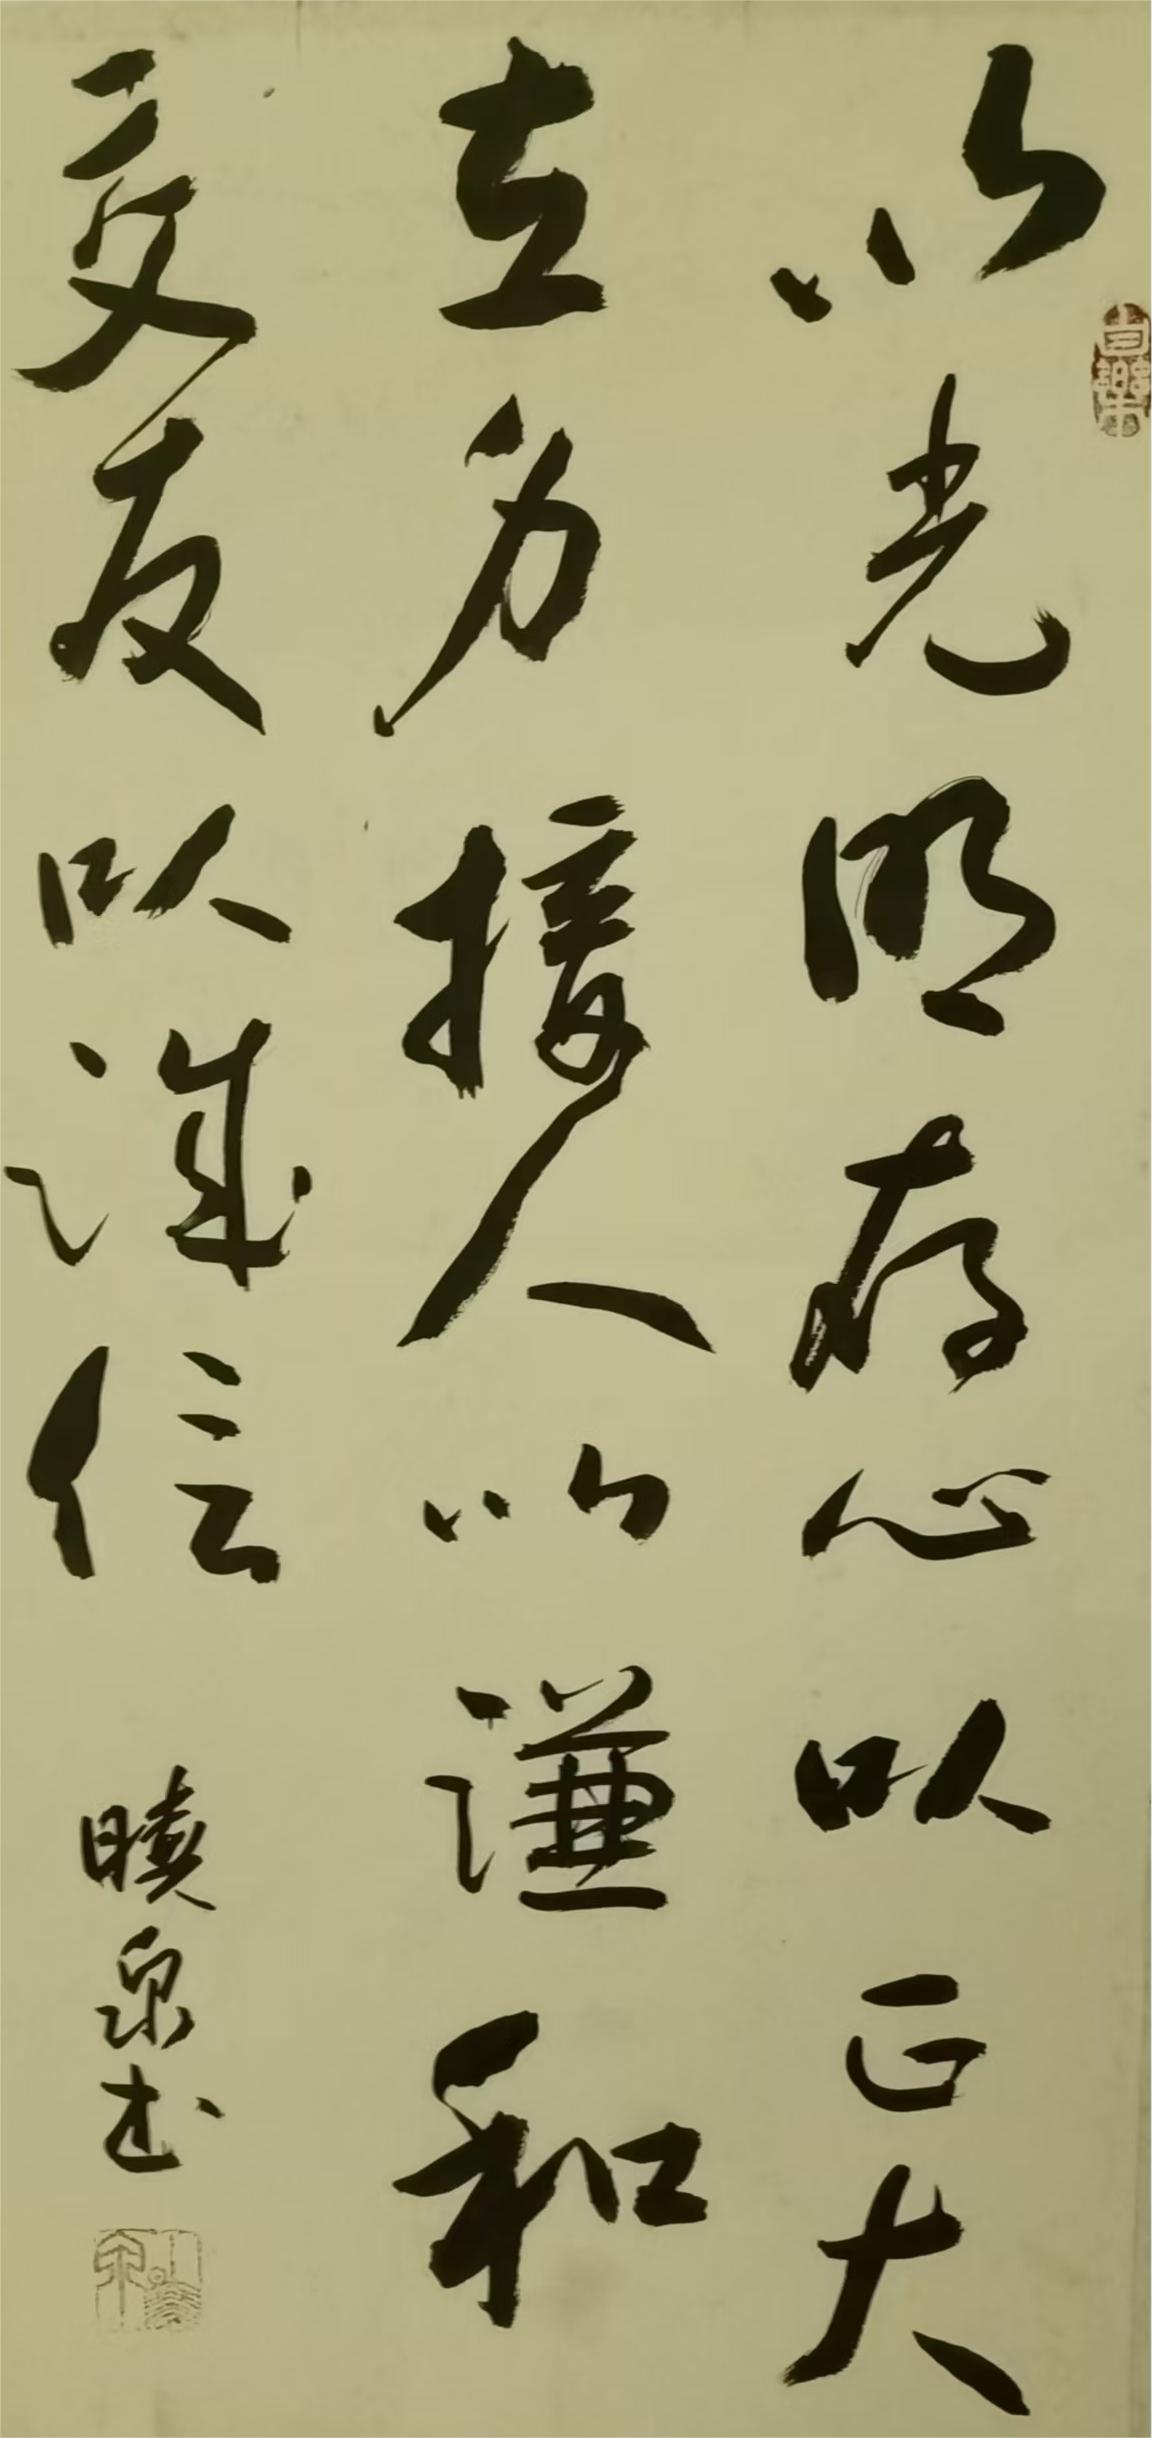 以光明存心以正大
立身接人以謙和
交友以誠信
曉泉書